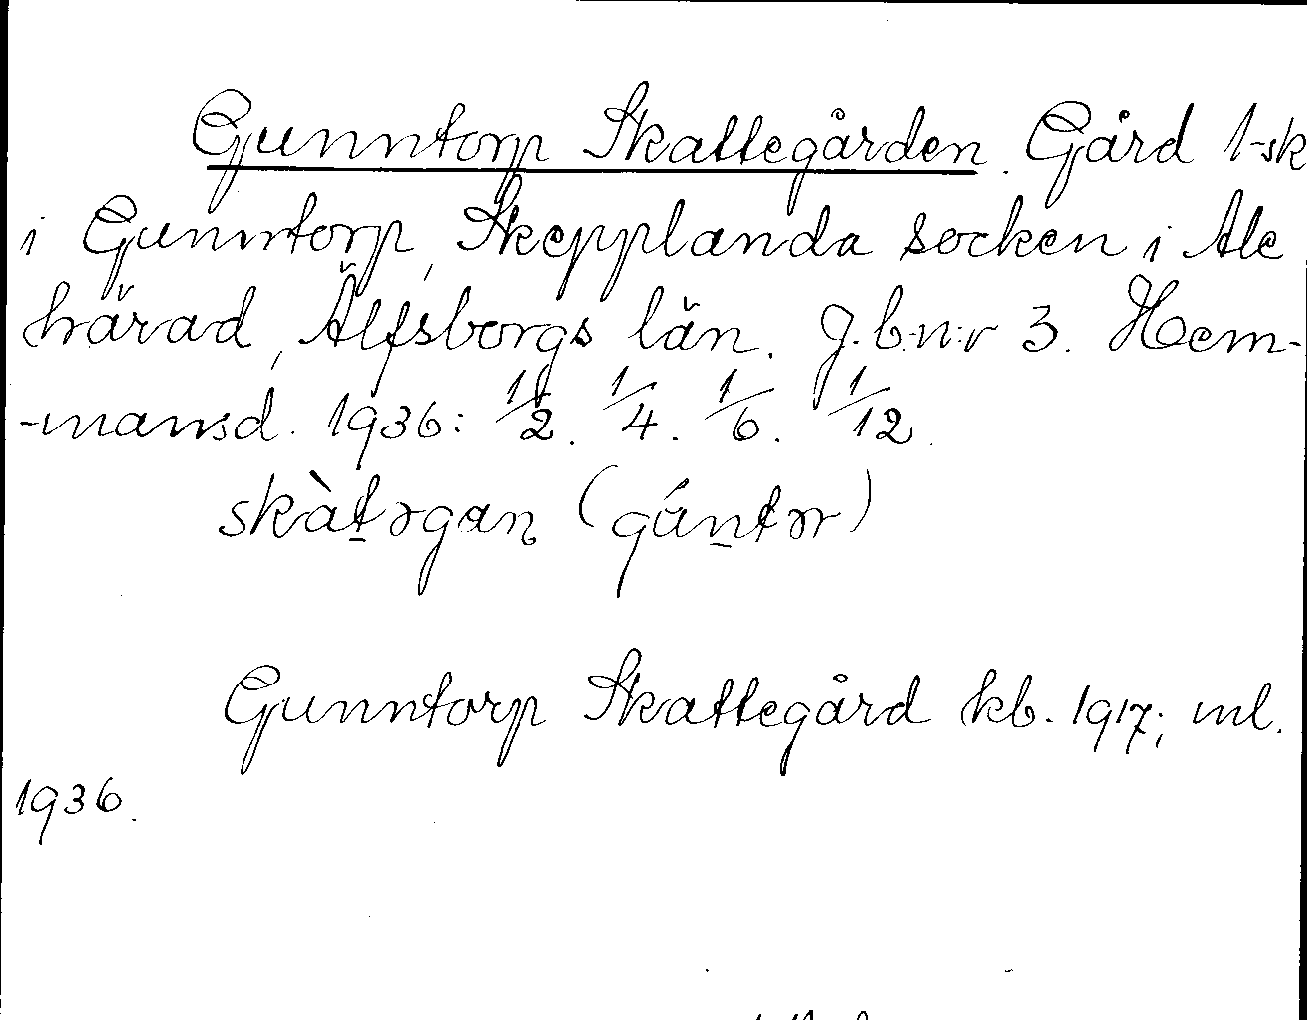 Gunntorp Skattegården. Gård 1 sk
i Gunntorp, Skepplanda socken i Ale
härad, Älfsborgs län. J.b.n:r 3. Hem-
-mansd. 1936: 1/2. 1/4. 1/6. 1/12.
skàt̲ərgan (gún̲tər)
Gunntorp Skattegård kb. 1917; ml.
1936.